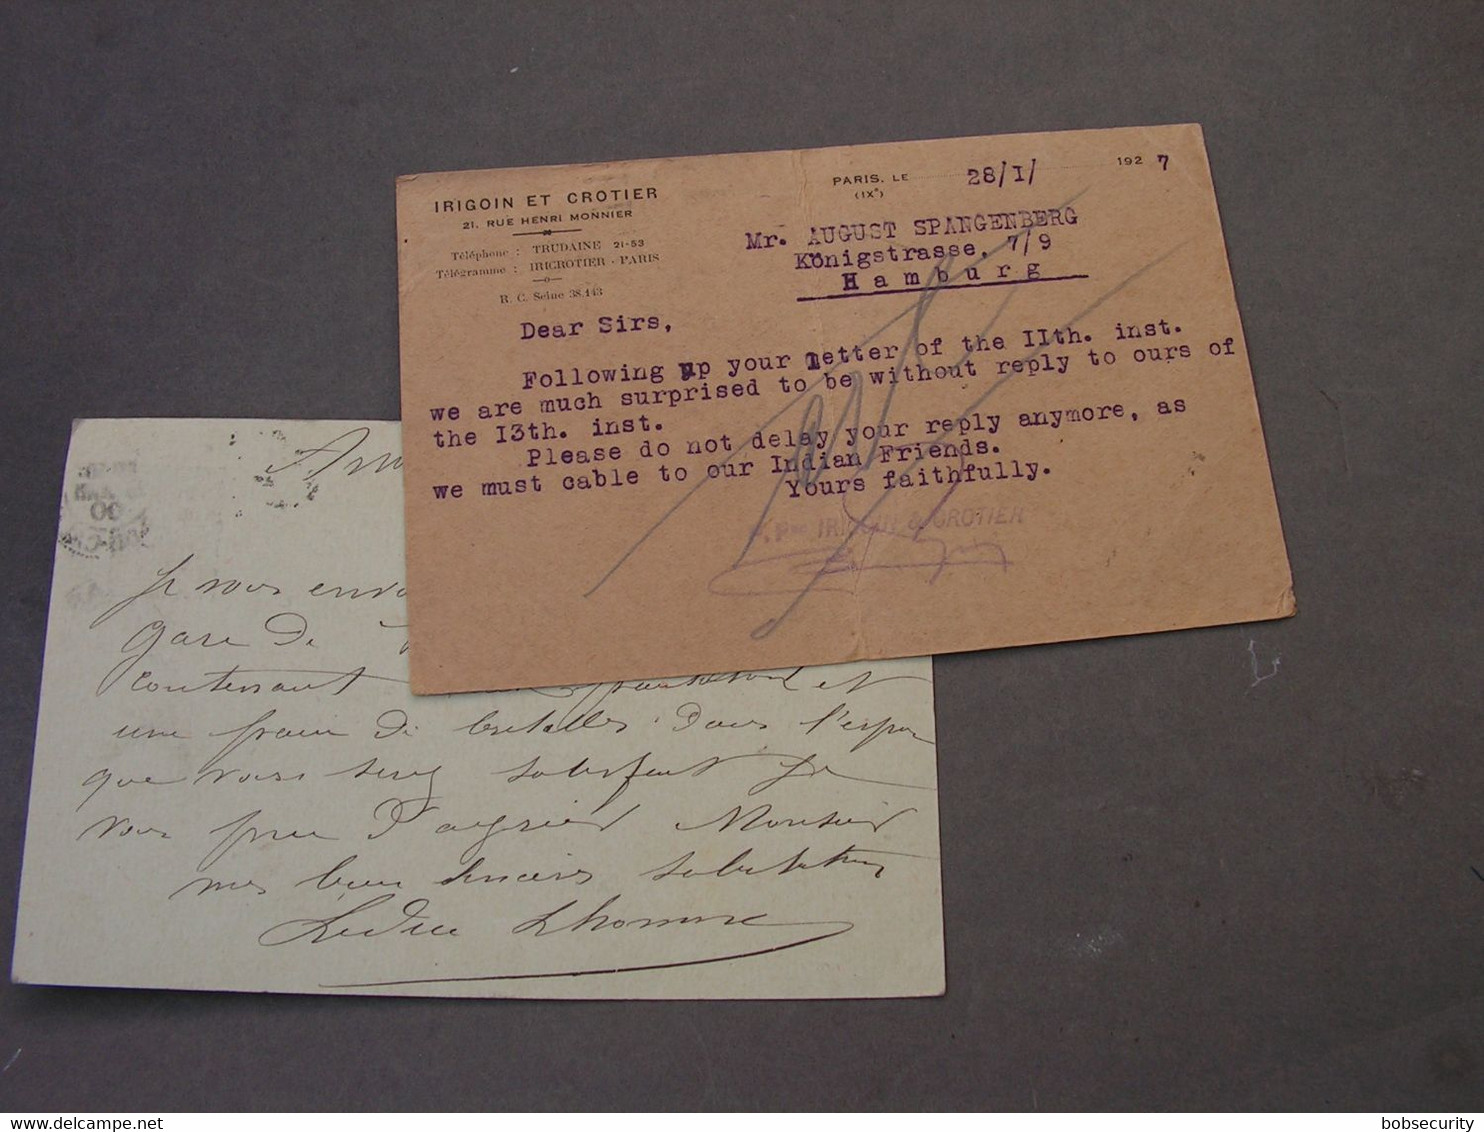 IRIGOIN ET CROTIER
21. RUE HENRI MONNIER
Téléphone : TRUDAINE 21-53
Télégramme : IRICROTIER - PARIS
R. C. Seine 38.143
PARIS, LE 28/I/ 1927
(IXe)
Mr. AUGUST SPANGENBERG
Königstrasse. 7/9
Hamburg
Dear Sirs,
Following up your letter of the IIth. inst.
we are much surprised to be without reply to ours of
the I3th. inst.
Please do not delay your reply anymore, as
we must cable to our Indian Friends.
Yours faithfully.
IRIGOIN & CROTIER
Je vous envo
gare de
contenant et
une de bretelles Dans l'espoir
que vous serez satisfait je
vous prie d'agréer Monsieur
mes bien sincères salutations
Leduc Lhomme
bobsecurity